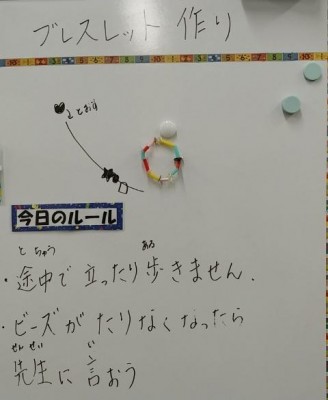 ブレスレット 作り
とおす
今日のルール
とちゅう ある
・途中で 立ったり歩きません.
・ビーズが たりなくなったら
せんせい い
先生に 言おう